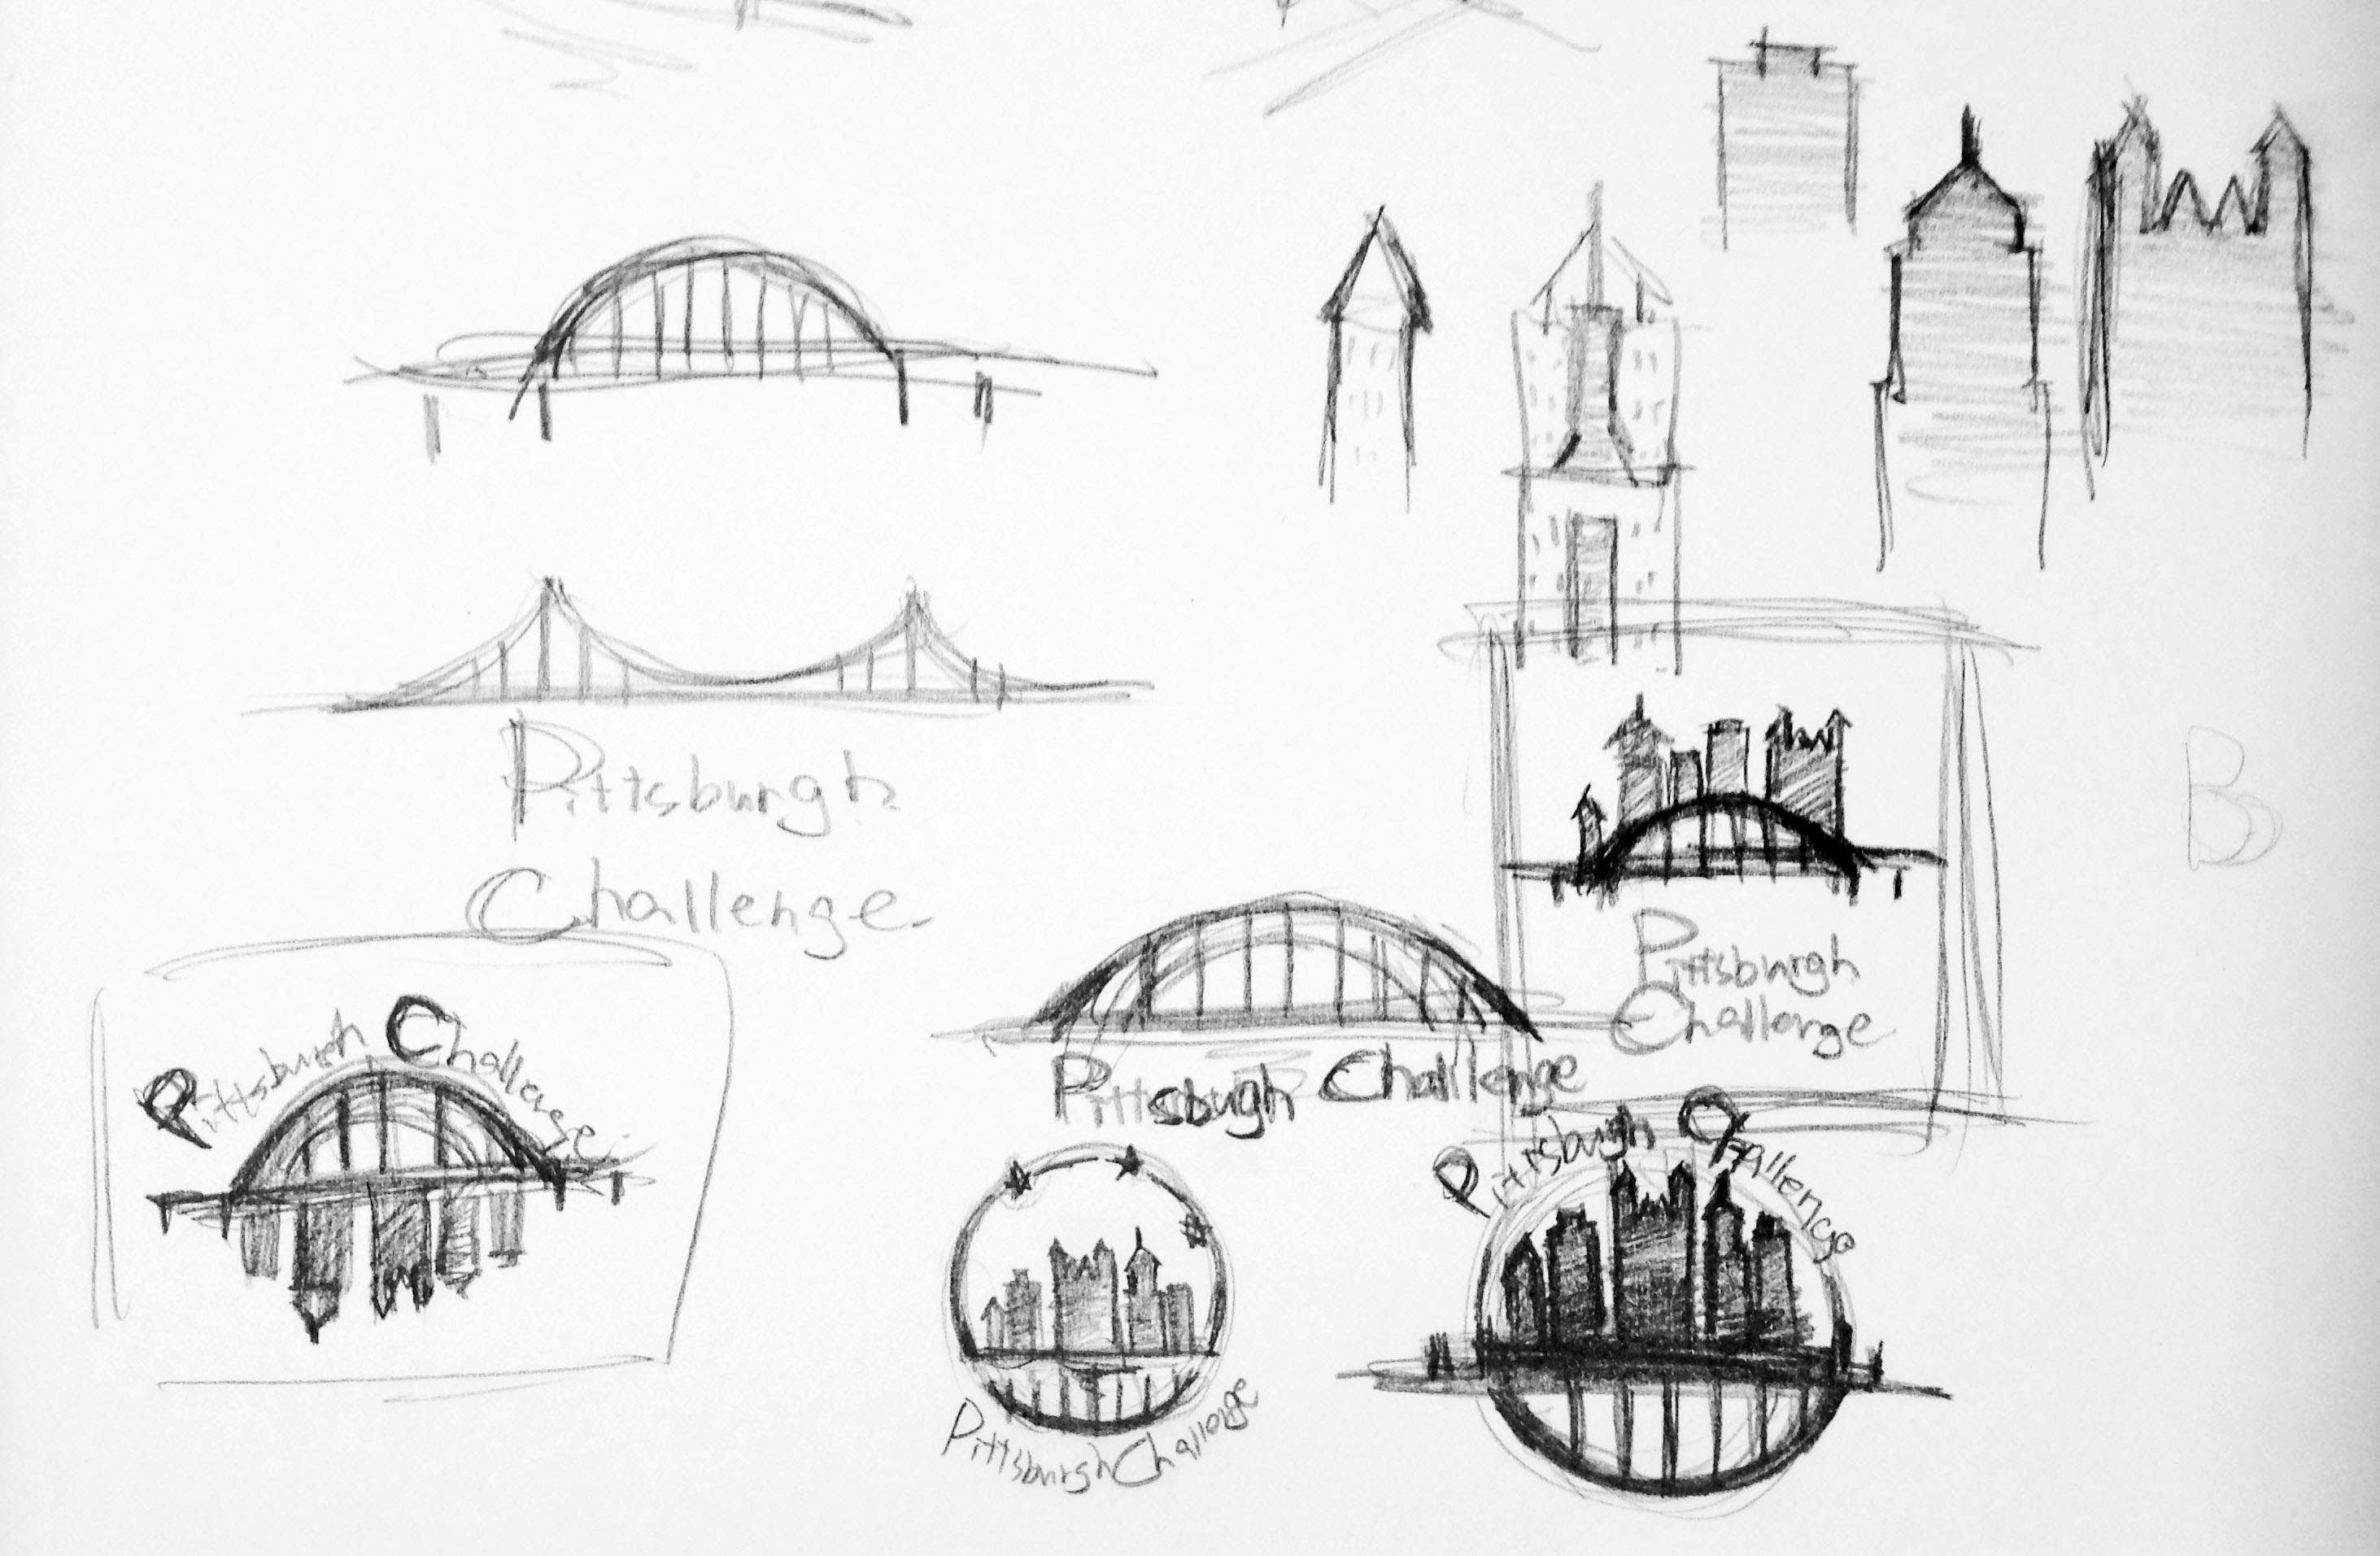 Pittsburgh
Challenge
B
Pittsburgh
Challenge
Pittsburgh Challenge
Pittsbugh Challenge
Pittsburgh Challenge
Pittsburgh Challenge